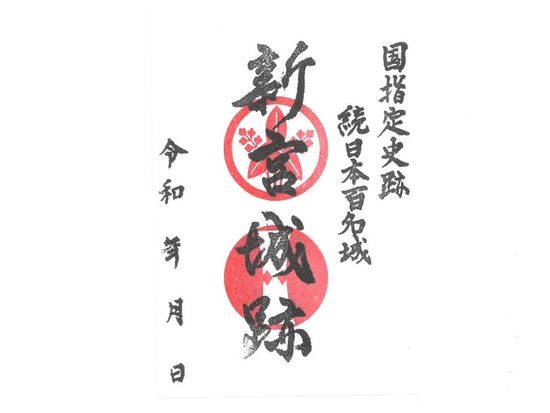 国指定史跡
続日本百名城
新宮城跡
令和 年 月 日